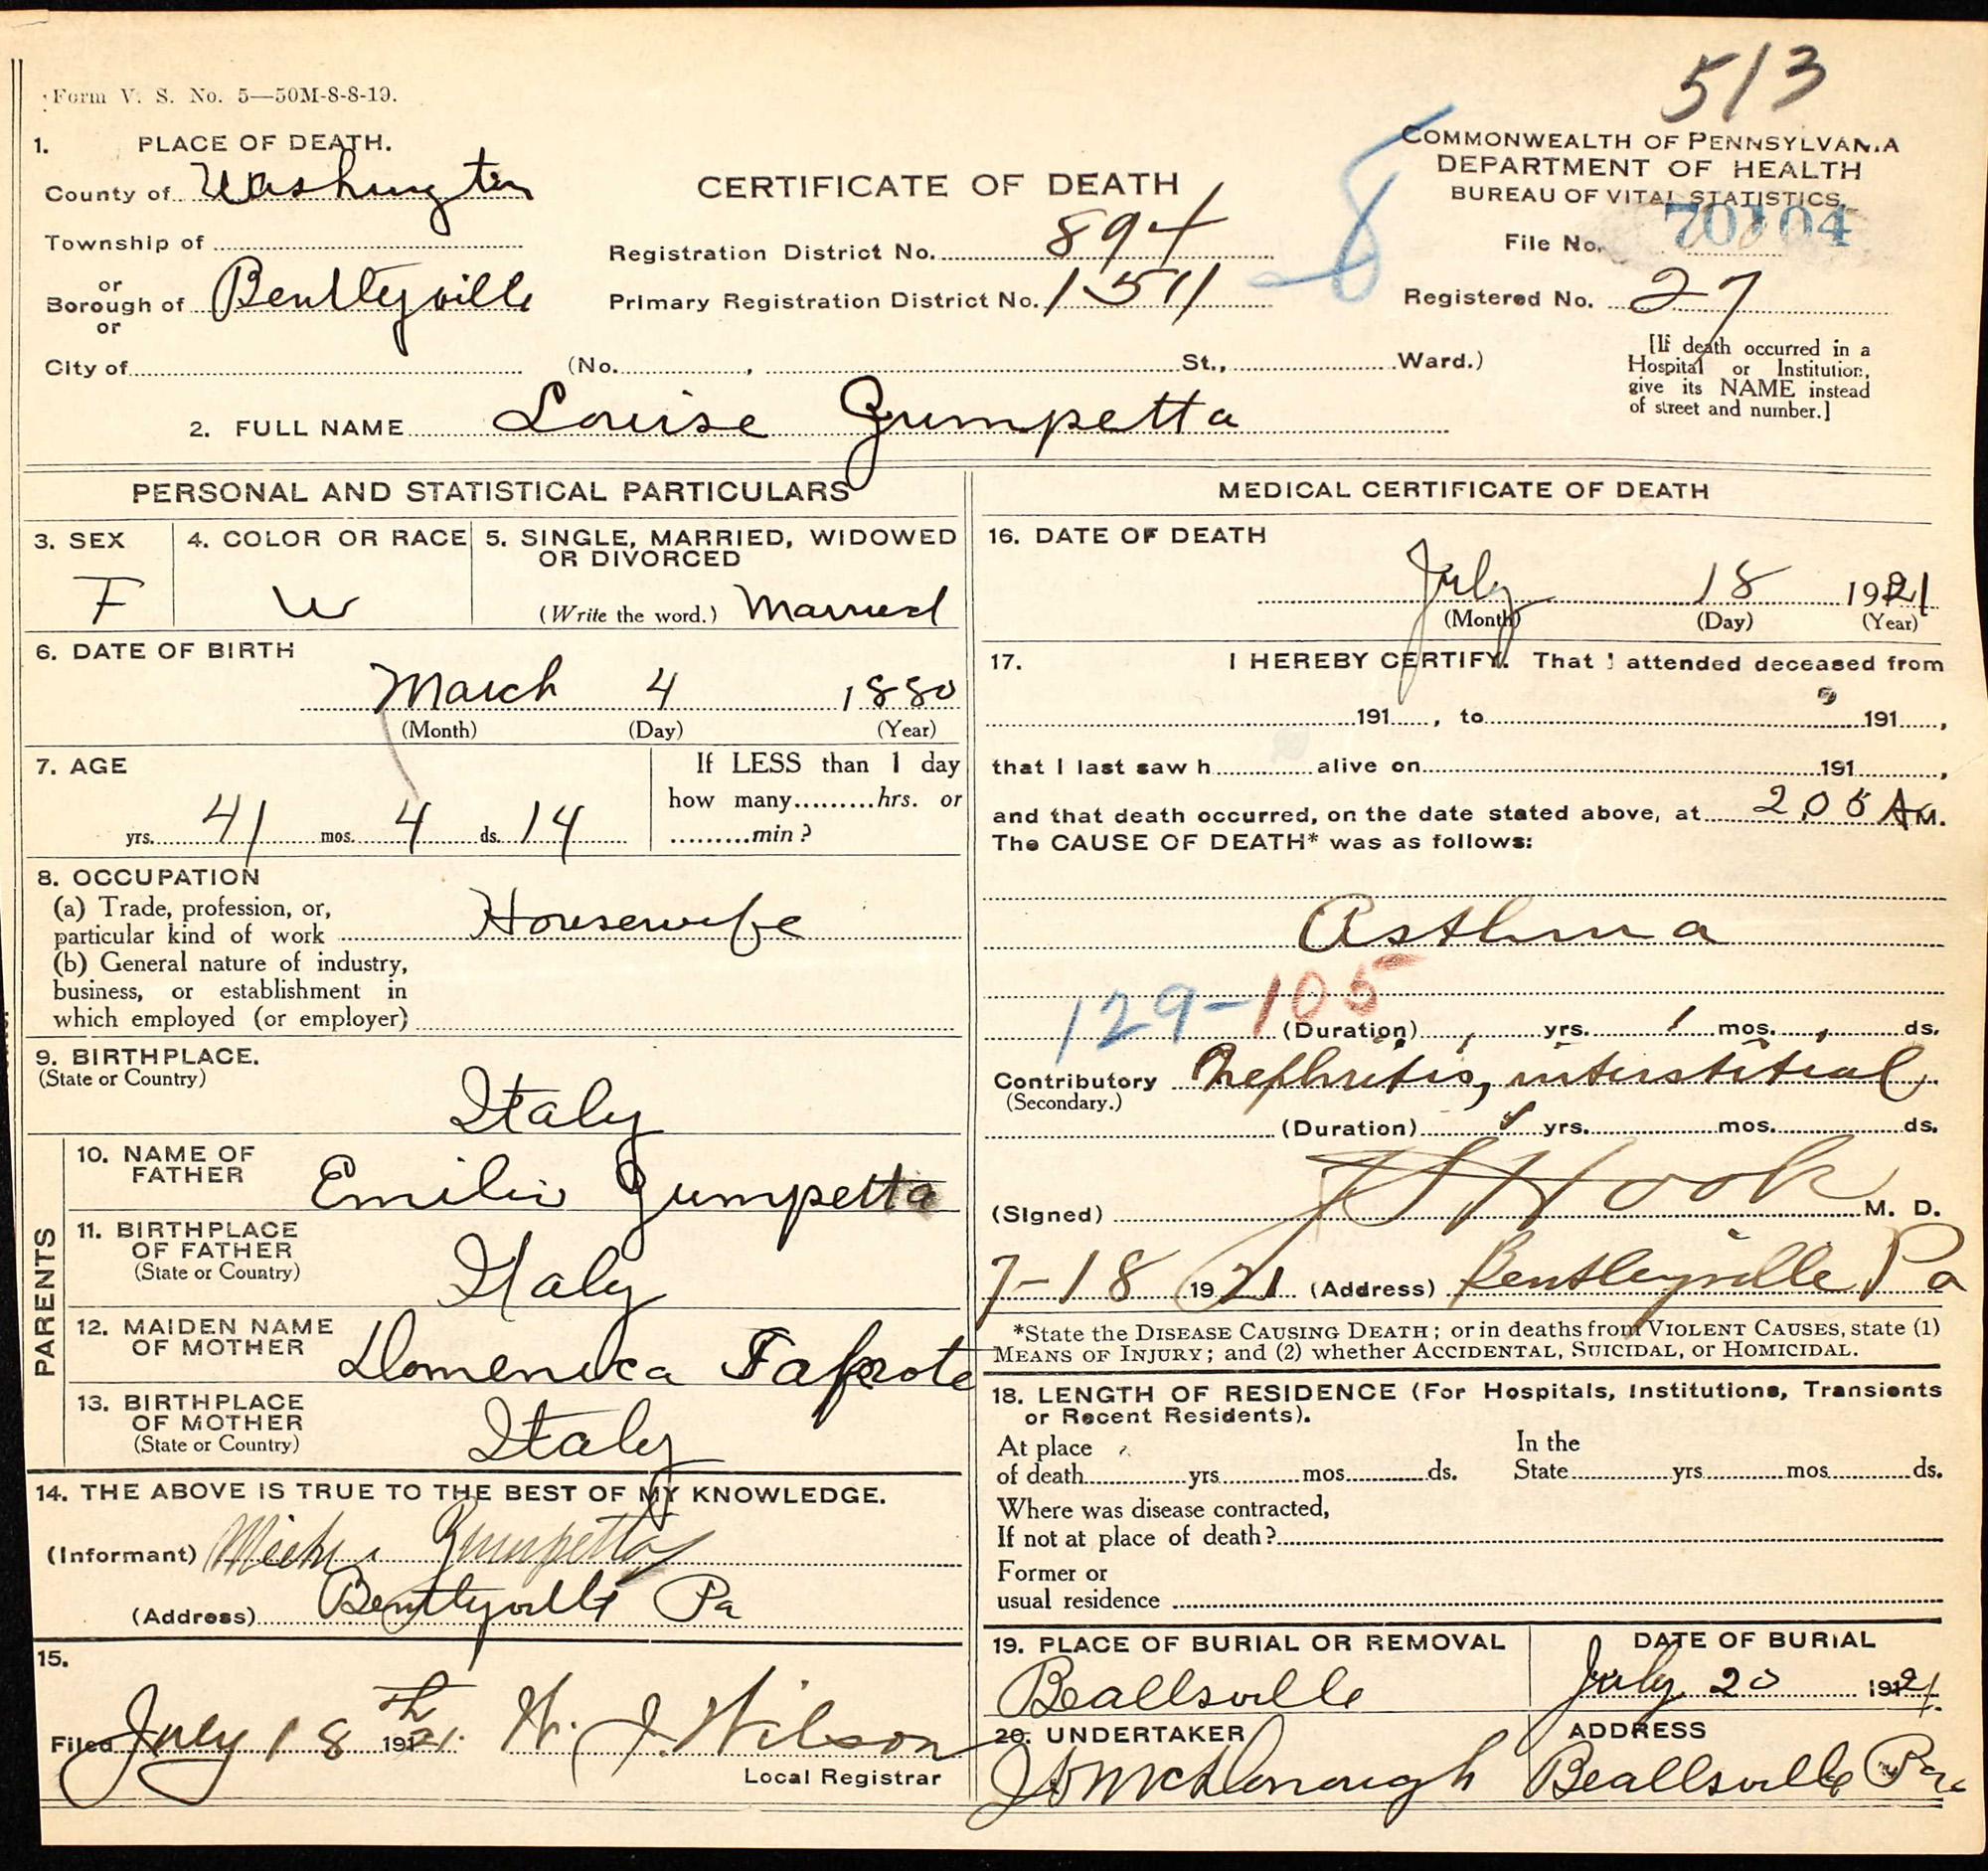 513
Form V. S. No. 5—50M-8-8-19.
1. PLACE OF DEATH.
County of Washington
Township of
or
Borough of Bentleyville
or
City of (No. , St., Ward.)
CERTIFICATE OF DEATH
Registration District No. 894
Primary Registration District No. 1511
8
COMMONWEALTH OF PENNSYLVANIA
DEPARTMENT OF HEALTH
BUREAU OF VITAL STATISTICS.
File No. 70104
Registered No. 27
[If death occurred in a
Hospital or Institution,
give its NAME instead
of street and number.]
2. FULL NAME Louise Gumpetta
PERSONAL AND STATISTICAL PARTICULARS
3. SEX
F
4. COLOR OR RACE
W
5. SINGLE, MARRIED, WIDOWED
OR DIVORCED
(Write the word.) Married
6. DATE OF BIRTH
March 4 1880
(Month) (Day) (Year)
7. AGE
yrs. 41 mos. 4 ds. 14
If LESS than 1 day
how many hrs. or
min?
8. OCCUPATION
(a) Trade, profession, or,
particular kind of work Housewife
(b) General nature of industry,
business, or establishment in
which employed (or employer)
9. BIRTHPLACE.
(State or Country)
Italy
PARENTS
10. NAME OF
FATHER
Emilio Gumpetta
11. BIRTHPLACE
OF FATHER
(State or Country)
Italy
12. MAIDEN NAME
OF MOTHER
Domenica
13. BIRTHPLACE
OF MOTHER
(State or Country)
Italy
14. THE ABOVE IS TRUE TO THE BEST OF MY KNOWLEDGE.
(Informant) Gumpetta
(Address) Bentleyville Pa
15.
Filed July 18th 1921. W. J. Wilson
Local Registrar
MEDICAL CERTIFICATE OF DEATH
16. DATE OF DEATH
July 18 1921
(Month) (Day) (Year)
17. I HEREBY CERTIFY. That I attended deceased from
191 , to 191 ,
that I last saw h alive on 191 ,
and that death occurred, on the date stated above, at 2.05 AM.
The CAUSE OF DEATH* was as follows:
Asthma
129-105
(Duration) yrs. 1 mos. ds.
Contributory Nephritis, interstitial
(Secondary.)
(Duration) yrs. mos. ds.
(Signed) Hook M. D.
7-18 1921 (Address) Bentleyville Pa
*State the DISEASE CAUSING DEATH; or in deaths from VIOLENT CAUSES, state (1)
MEANS OF INJURY; and (2) whether ACCIDENTAL, SUICIDAL, or HOMICIDAL.
18. LENGTH OF RESIDENCE (For Hospitals, Institutions, Transients
or Recent Residents).
At place
of death yrs mos ds.
In the
State yrs mos ds.
Where was disease contracted,
If not at place of death?
Former or
usual residence
19. PLACE OF BURIAL OR REMOVAL
Beallsville
DATE OF BURIAL
July 20 1921.
20. UNDERTAKER
McDonough
ADDRESS
Beallsville Pa